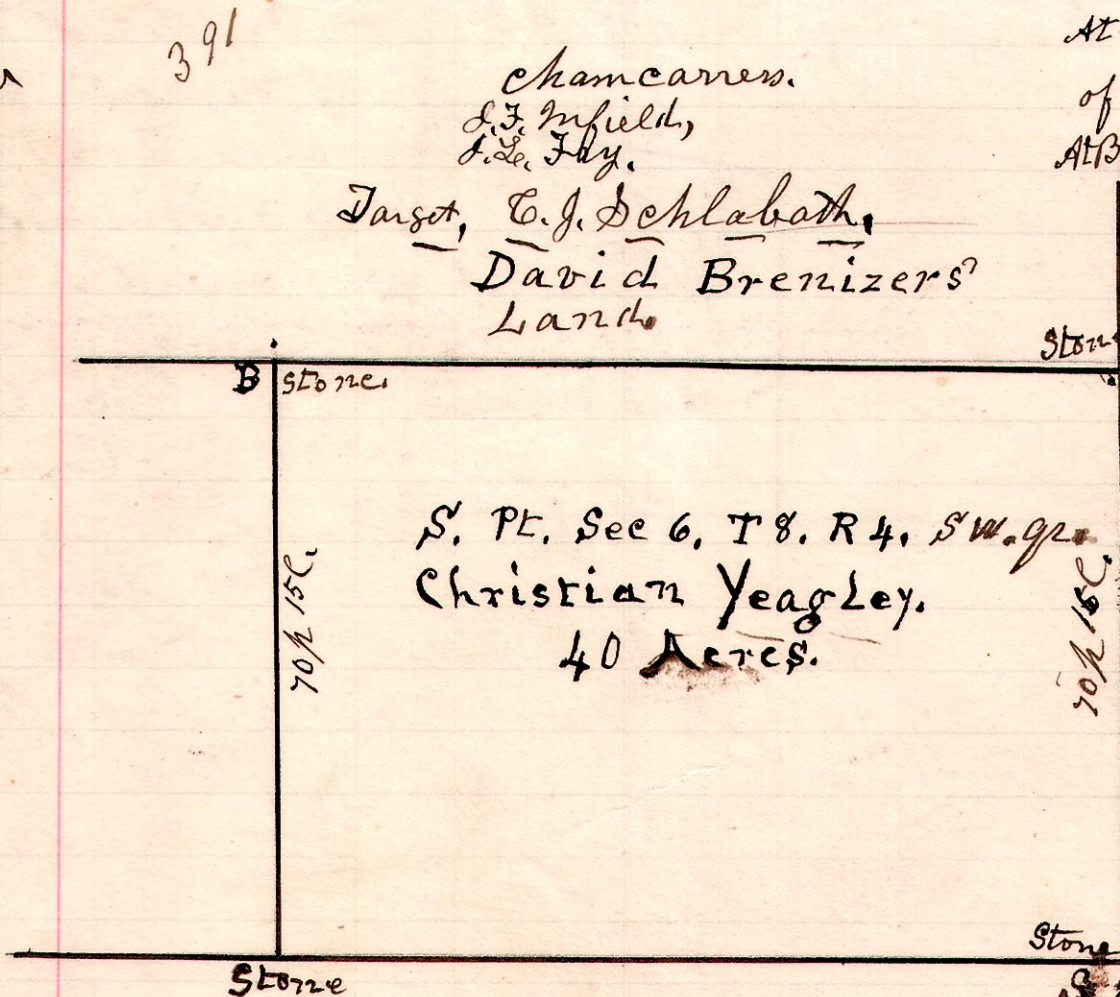 391
At
Chaincarriers.
of
J.F. Infield,
J.L. Fay.
At B
Target, C.J. Schlabath,
David Brenizers'
Land.
Ston
B stone.
S. Pt. Sec 6. T 8. R 4. SW. qr.
Christian Yeagley.
40 Acres.
70p 15l.
70p 15l.
Stone
Stone